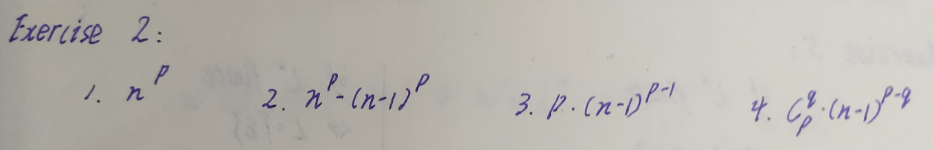 Exercise 2:
1. n^p 2. n^p-(n-1)^p 3. p·(n-1)^{p-1} 4. C_p^q·(n-1)^{p-q}